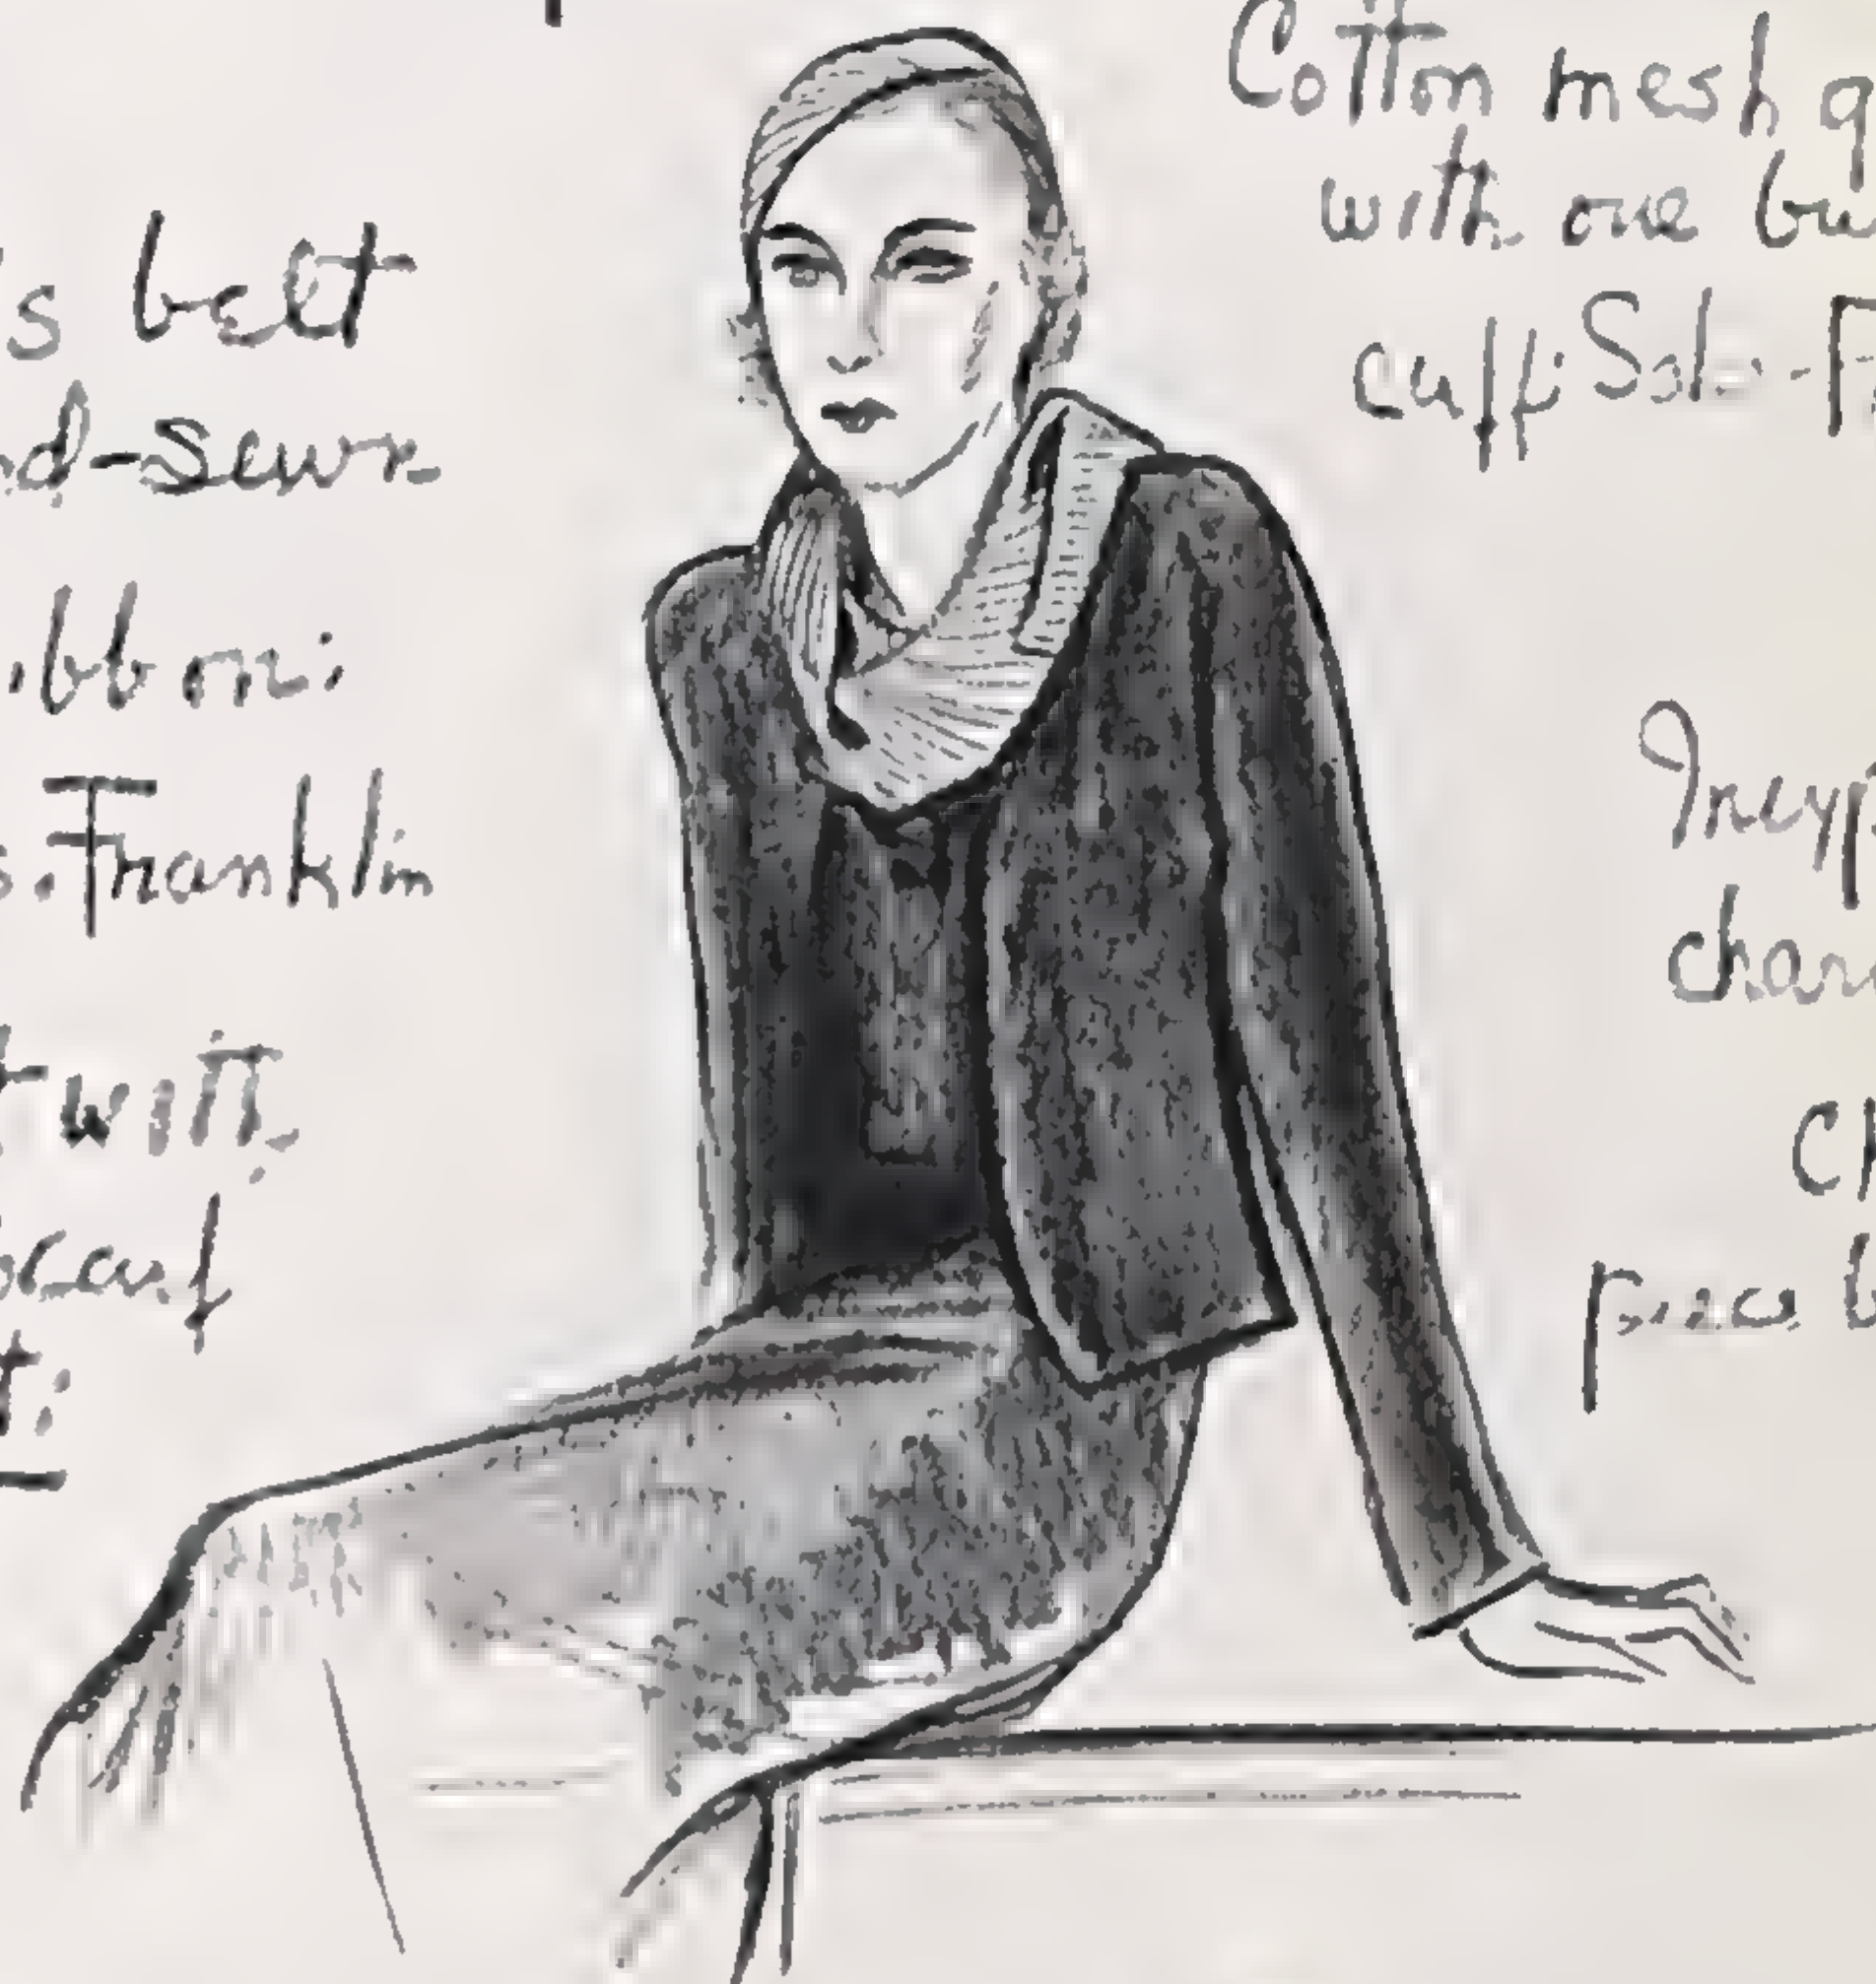 s belt
d-sewn
ibbon:
s. Franklin
t with
scarf
t:
Cotton mesh g
with one bu
cuff:
Inexp
char
Ch
piece b